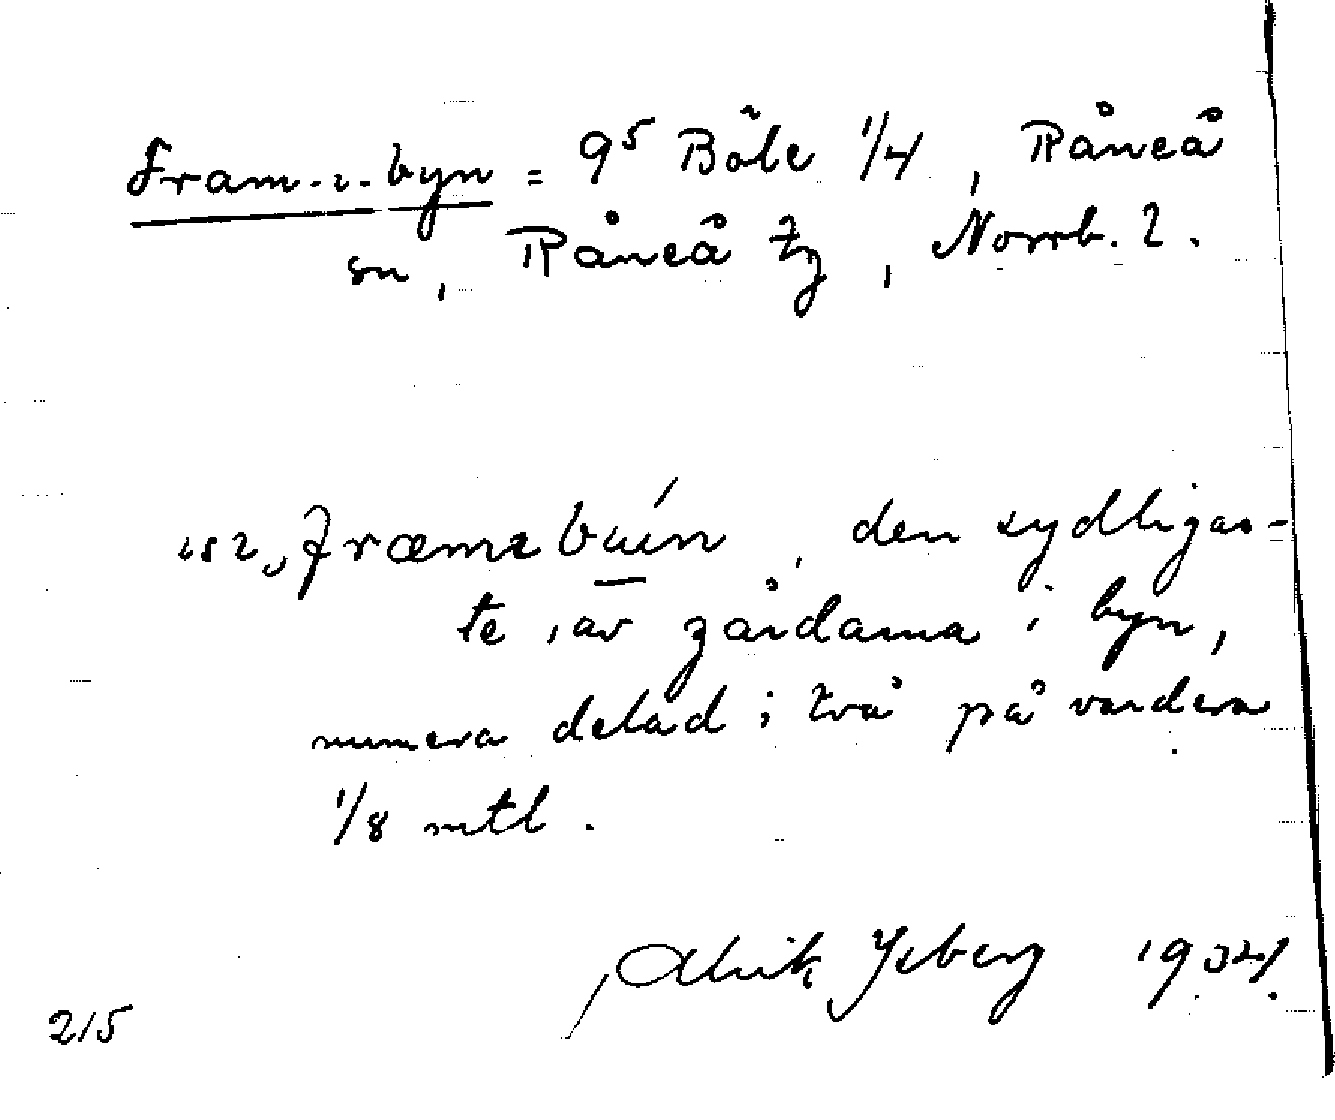 Fram-i-byn = 9⁵ Böle 1/4, Råneå
sn, Råneå tg, Norrb. l.
den sydligas-
te av gårdarna i byn,
numera delad i två på vardera
1/8 mtl.
Alrik Ysberg
215